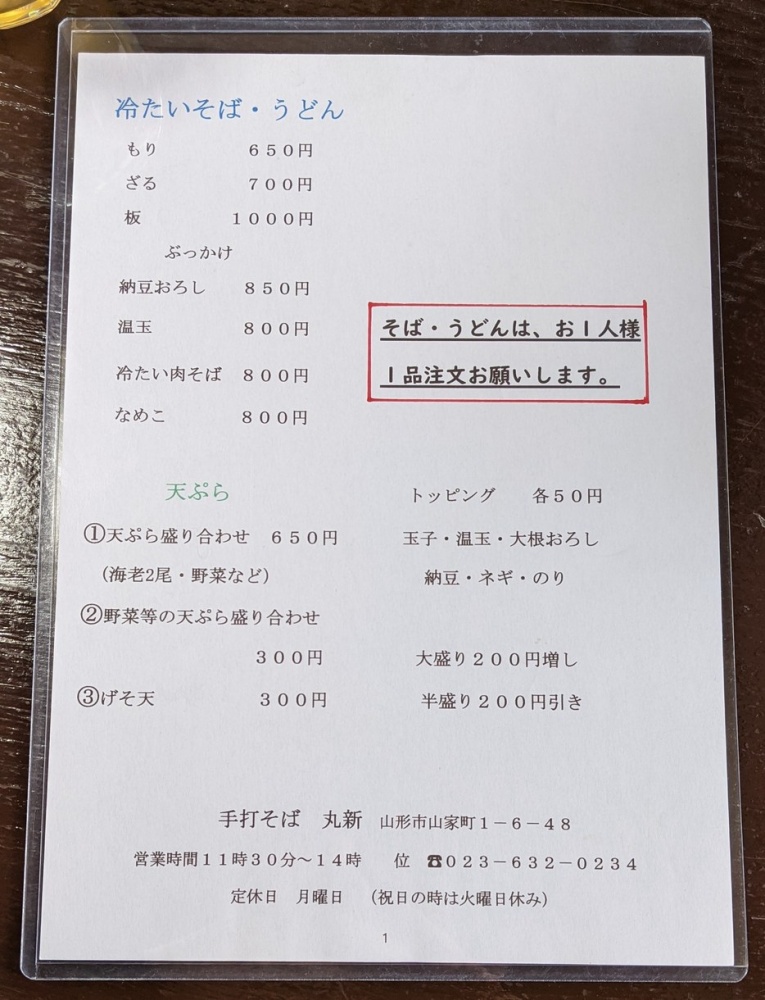 冷たいそば・うどん
もり　６５０円
ざる　７００円
板　１０００円
ぶっかけ
納豆おろし　８５０円
温玉　８００円
冷たい肉そば　８００円
なめこ　８００円
そば・うどんは、お１人様
１品注文お願いします。
天ぷら
①天ぷら盛り合わせ　６５０円
（海老2尾・野菜など）
②野菜等の天ぷら盛り合わせ
３００円
③げそ天　３００円
トッピング　各５０円
玉子・温玉・大根おろし
納豆・ネギ・のり
大盛り２００円増し
半盛り２００円引き
手打そば　丸新　山形市山家町１－６－４８
営業時間１１時３０分～１４時　位　☎０２３－６３２－０２３４
定休日　月曜日　（祝日の時は火曜日休み）
1